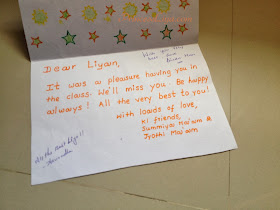 Dear Liyan,
It was a pleasure having you in
the class. We'll miss you. Be happy
always! All the very best to you!
With loads of love,
K1 friends,
Summiya Ma'am &
Jyothi Ma'am
All the Best